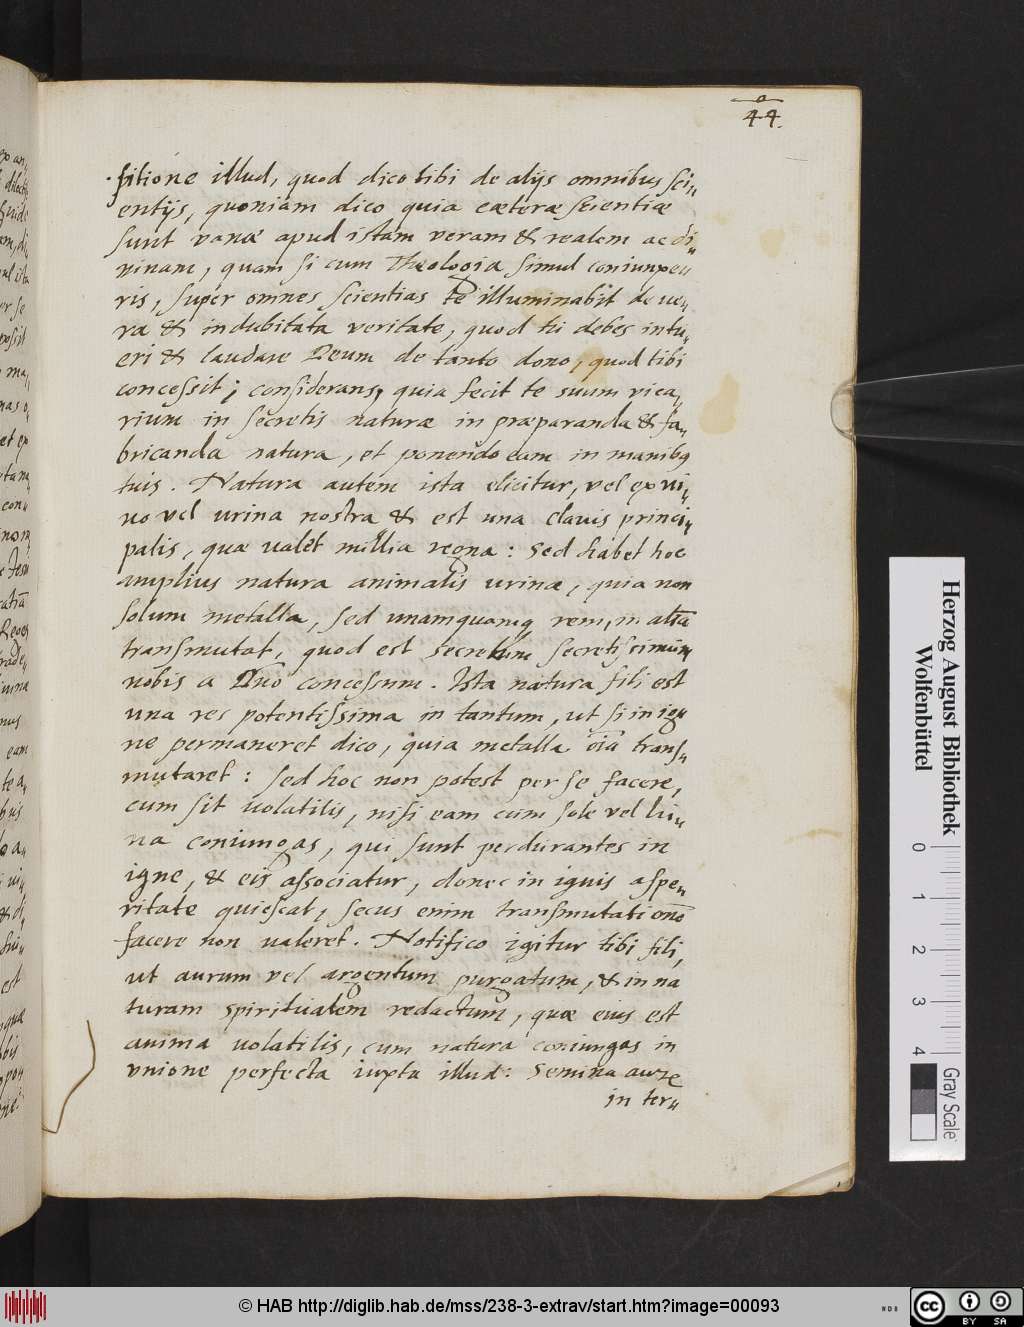 44.
sitione illud, quod dico tibi de alijs omnibus sci„
entijs, quoniam dico quia cæteræ scientiæ
sunt vanæ apud istam veram & realem ac di„
vinam, quam si cum Theologia simul coniunxe„
ris, super omnes scientias te illuminabit de ue„
ra & indubitata veritate, quod tu debes intu„
eri & laudare Deum de tanto dono, quod tibi
concessit; considerans, quia fecit te suum vica„
rium in secretis naturæ in præparanda & fa„
bricanda natura, et ponendo eam in manibq
tuis. Natura autem ista elicitur, vel ex vi„
uo vel urina nostra & est una clavis princi„
palis, quæ ualet millia regna: Sed habet hoc
amplius natura animalis urinæ, quia non
solum metalla, sed unamquamq rem, in aliã
transmutat, quod est secretum secretissimum
nobis a Dño concessum. Ista natura fili est
una res potentissima in tantum, ut si in ig„
ne permaneret dico, quia metalla oĩa trans„
mutaret: sed hoc non potest per se facere,
cum sit uolatilis, nisi eam cum sole vel lu„
na coniungas, qui sunt perdurantes in
igne, & eis associatur, donec in ignis aspe„
ritate quiescat, secus enim transmutationẽ
facere non ualeret. Notifico igitur tibi fili,
ut aurum vel argentum purgatum, & in na
turam spiritualem redactum, quæ eius est
anima uolatilis, cum natura coniungas in
vnione perfecta iuxta illud: Semina aurũ
in ter„
Herzog August Bibliothek
Wolfenbüttel
0 1 2 3 4
Gray Scale
© HAB http://diglib.hab.de/mss/238-3-extrav/start.htm?image=00093
cc BY SA